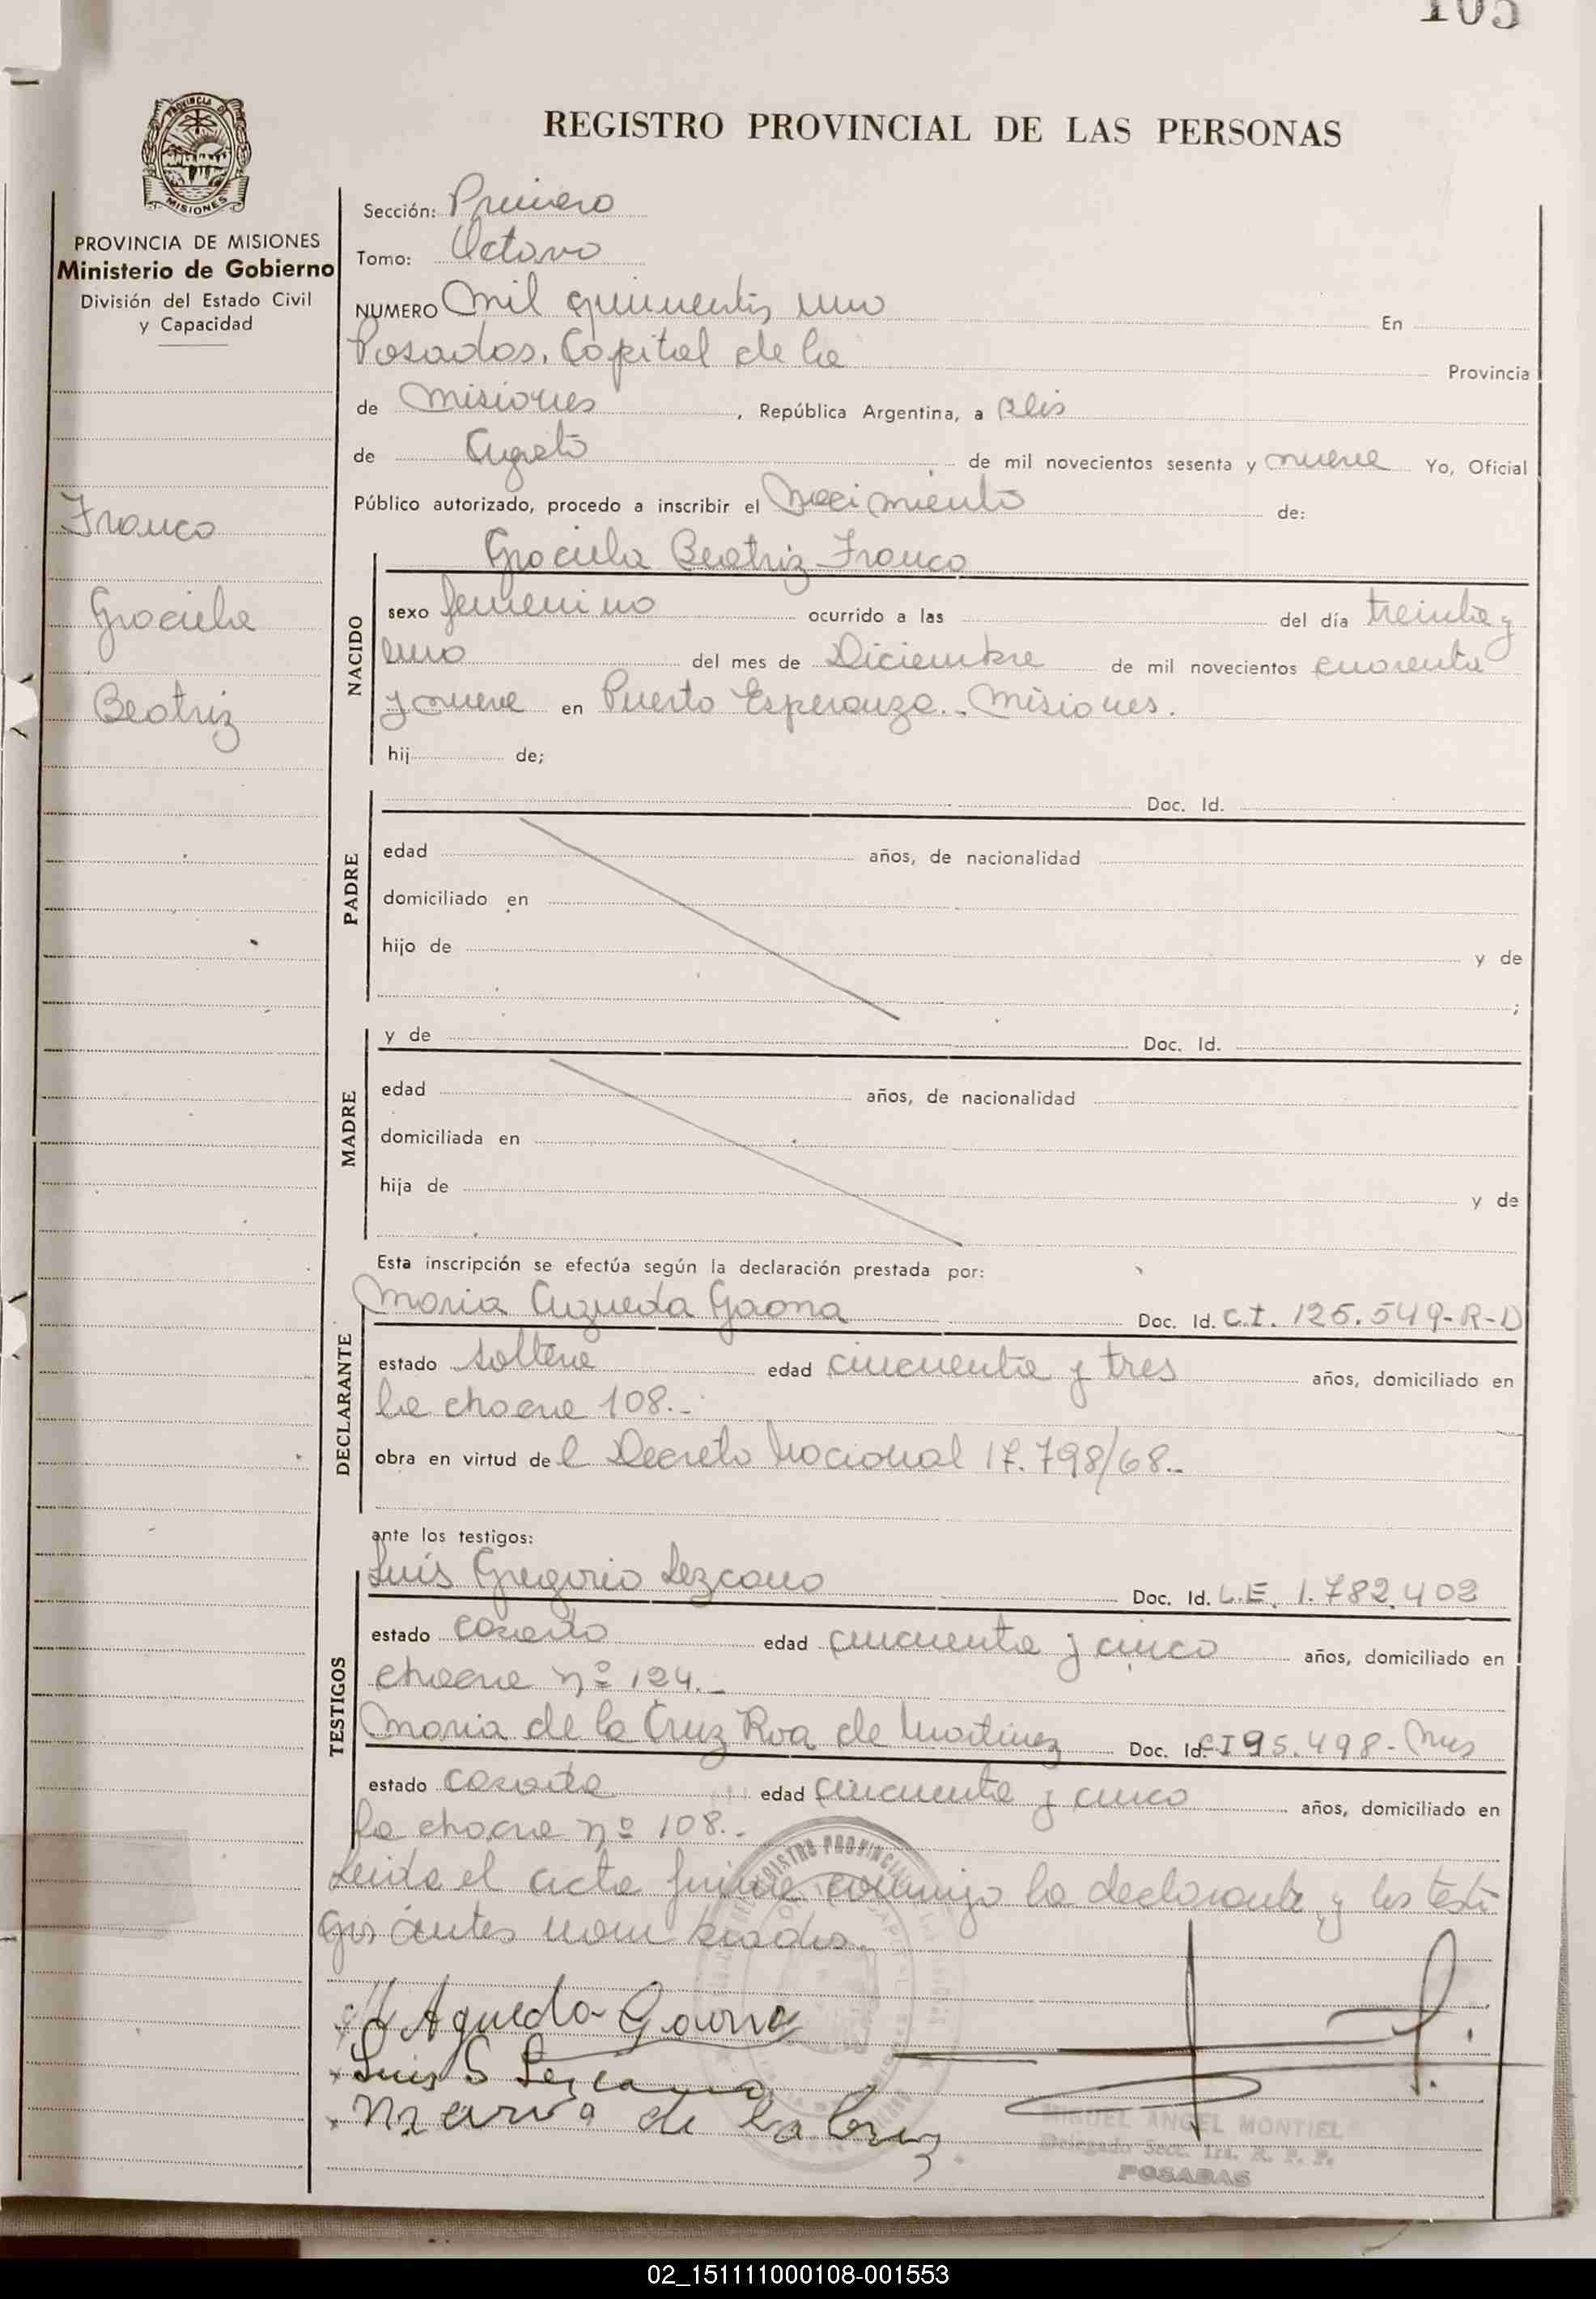 105
REGISTRO PROVINCIAL DE LAS PERSONAS
PROVINCIA DE MISIONES
PROVINCIA DE MISIONES
Ministerio de Gobierno
División del Estado Civil
y Capacidad
Franco
Graciela
Beatriz
Sección: Primera
Tomo: Octavo
NUMERO mil quinientos uno En
Posadas, Capital de la Provincia
de Misiones, República Argentina, a seis
de Agosto de mil novecientos sesenta y nueve Yo, Oficial
Público autorizado, procedo a inscribir el Nacimiento de:
Graciela Beatriz Franco
NACIDO
sexo femenino ocurrido a las del día treinta y
uno del mes de Diciembre de mil novecientos cuarenta
y nueve en Puerto Esperanza.. Misiones.
hij de;
PADRE
Doc. Id.
edad años, de nacionalidad
domiciliado en
hijo de y de
;
MADRE
y de Doc. Id.
edad años, de nacionalidad
domiciliada en
hija de y de
Esta inscripción se efectúa según la declaración prestada por:
DECLARANTE
Maria Agueda Gaona Doc. Id. C.I. 125.549-R-D
estado soltera edad cincuenta y tres años, domiciliado en
la chacra 108.-
obra en virtud del Decreto Nacional 17.798/68.-
ante los testigos:
TESTIGOS
Luis Gregorio Lezcano Doc. Id. L.E. 1.782.402
estado casado edad cincuenta y cinco años, domiciliado en
chacra nº 124.-
Maria de la Cruz Roa de Martinez Doc. Id. CI 95.498-Mns
estado casada edad cincuenta y cinco años, domiciliado en
la chacra nº 108.-
Leida el acta firma conmigo la declarante y los testi
gos antes nombrados.
M Agueda Gaona
Luis G Lezcano
Maria de la Cruz
MIGUEL ANGEL MONTIEL
Delegado Secc. 1ra. R. P. P.
POSADAS
02_151111000108-001553